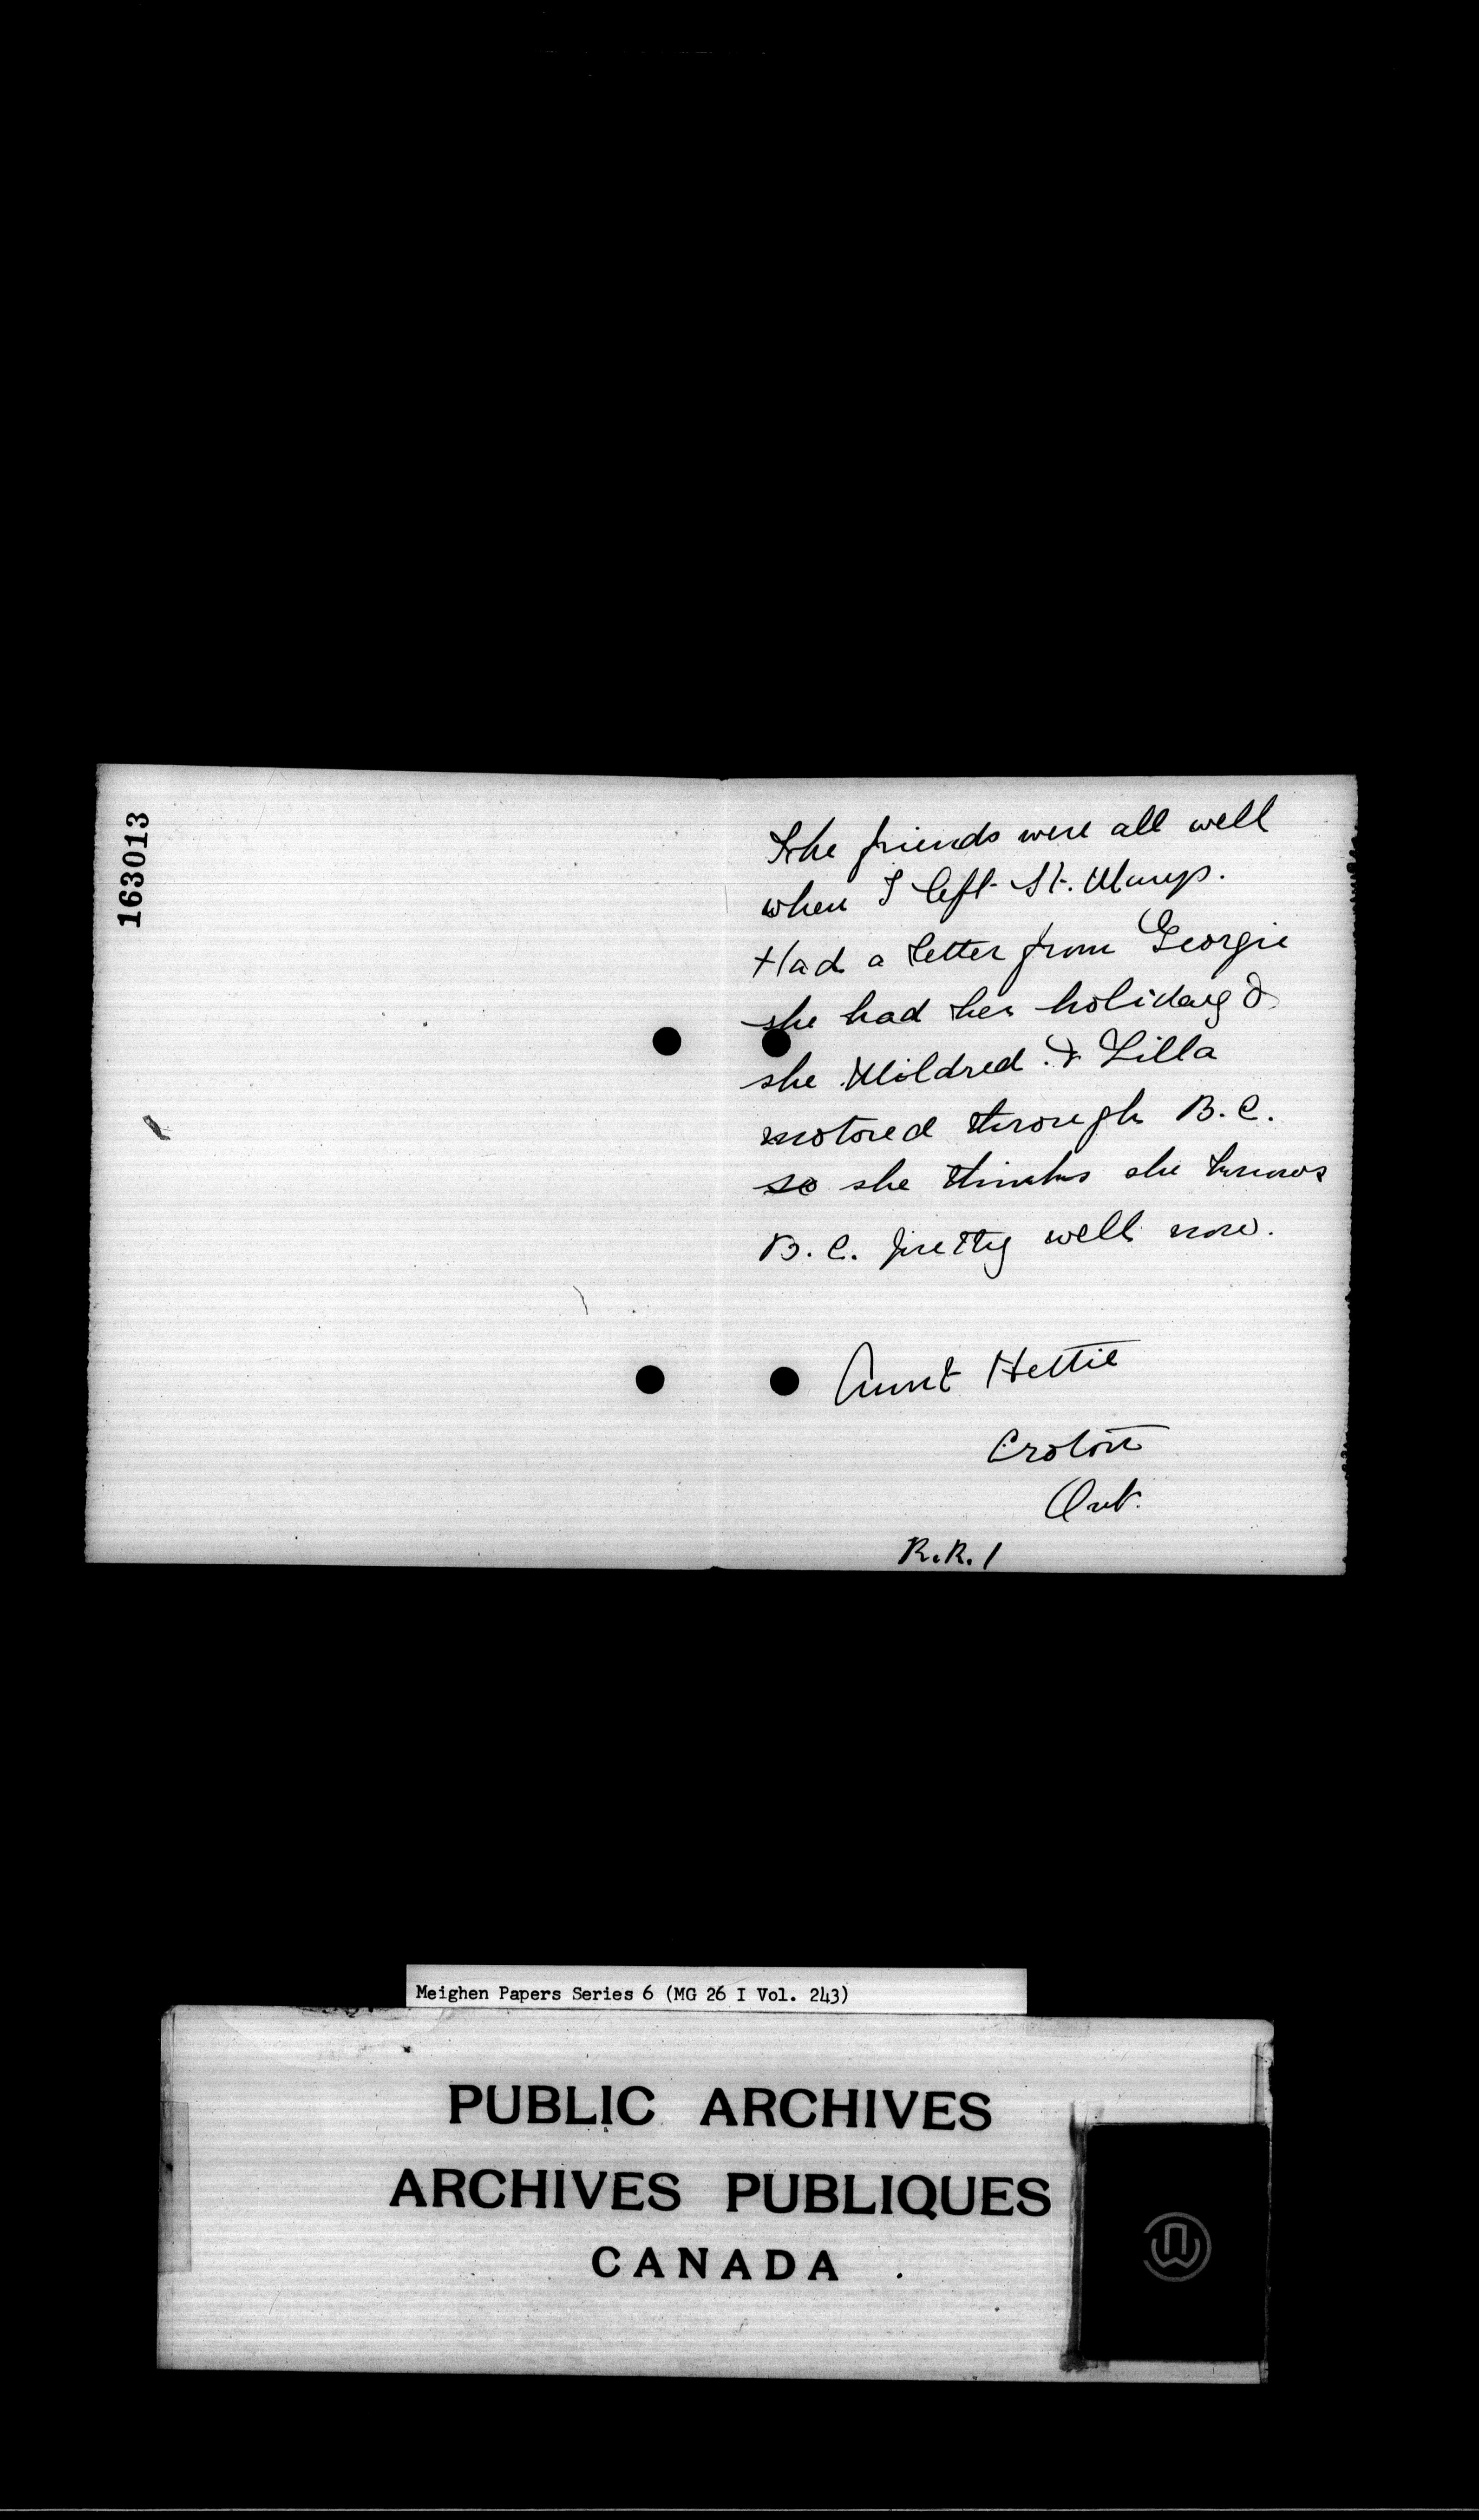 163013
The friends were all well
when I left St. Marys.
Had a letter from Georgie
she had her holiday &
she Mildred & Lilla
motored through B.C.
so she thinks she knows
B.C. pretty well now.
Aunt Hettie
Croton
Ont.
R.R. 1
Meighen Papers Series 6 (MG 26 I Vol. 243)
PUBLIC ARCHIVES
ARCHIVES PUBLIQUES
CANADA